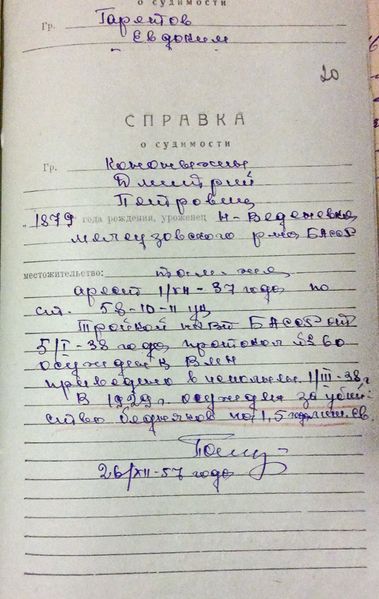 о судимости
Гр. Гарептов
Евдоким
20
СПРАВКА
о судимости
Гр.
Дмитрий
Петрович
1879 года рождения, уроженец Н-Веденевка
мелеузовского р-на БАССР
местожительство: там-же
арест 1/XII-37 года по
ст. 58-10-11 ук
Тройкой НКВД БАССР от
5/I-38 года протокол №
осужден к ВМН
приведено в исполнен. 1/III-38 г
В 1929 г. осужден за убий-
ство бедняков на 1,5
26/XII-57 года